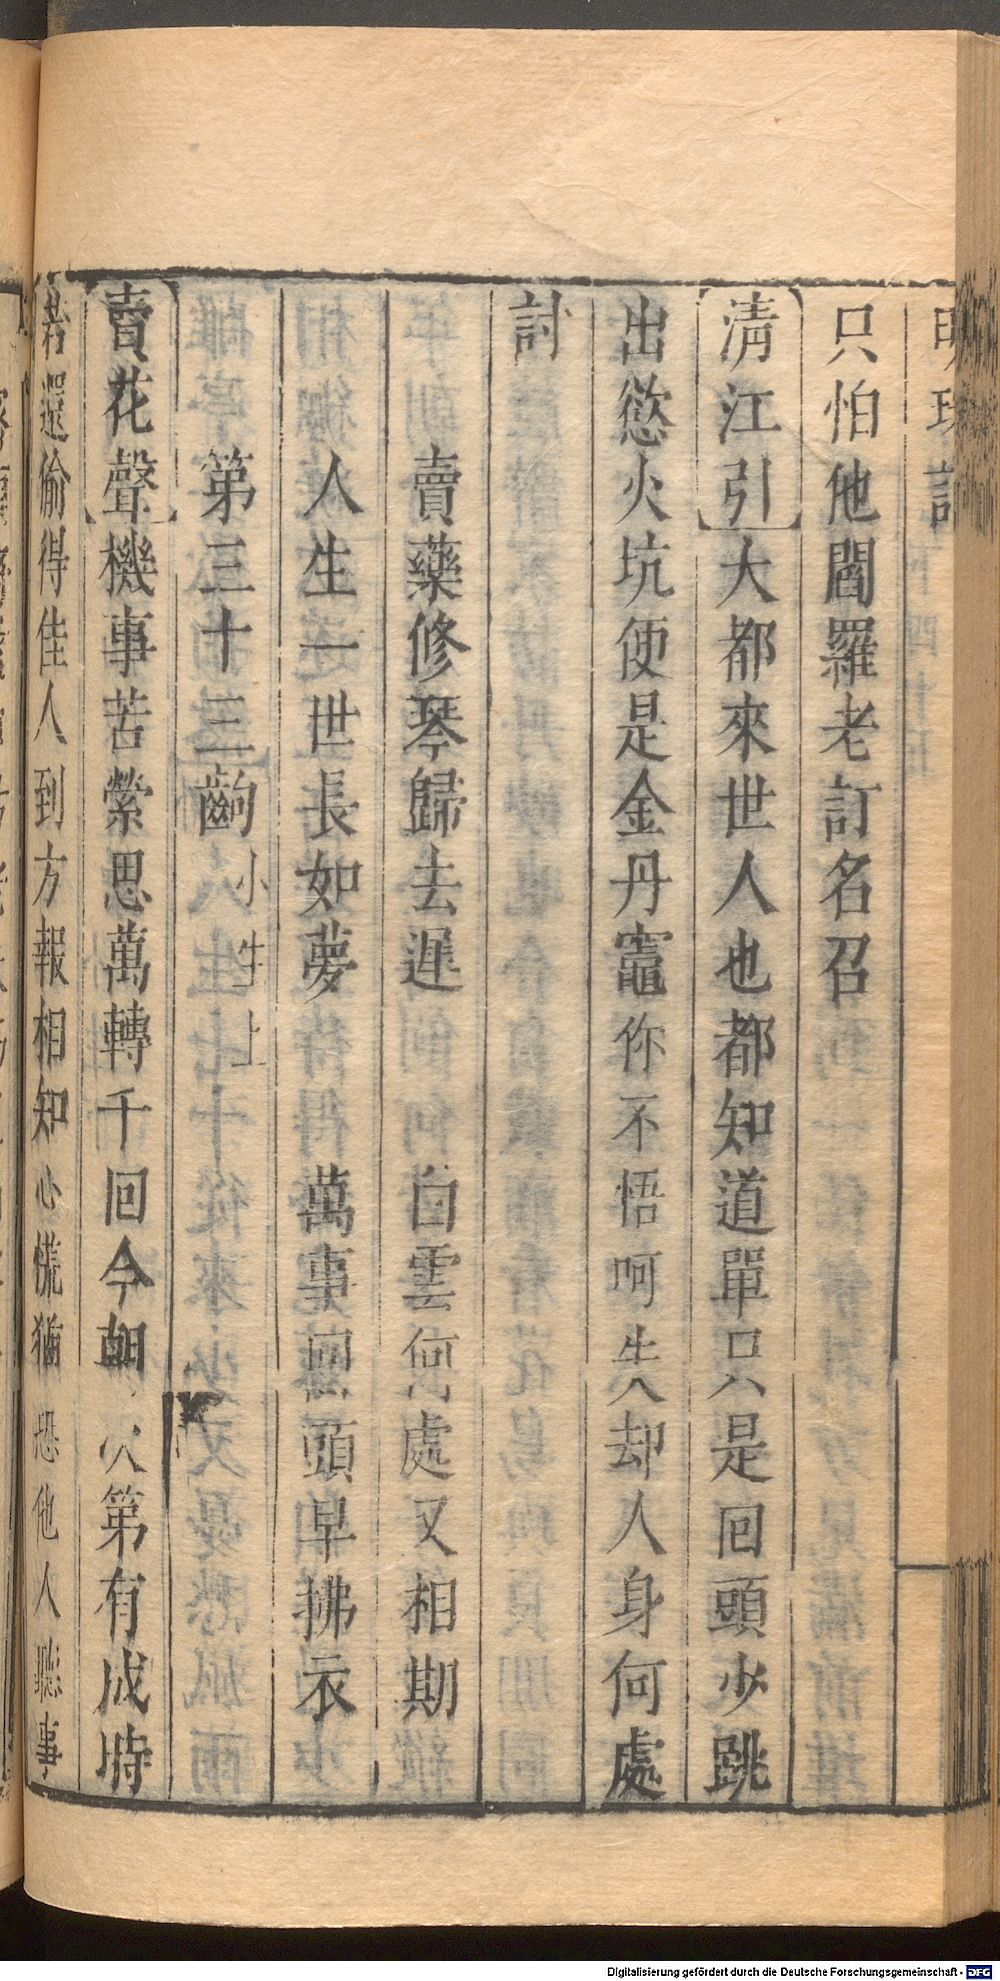 明珠記
只怕他閻羅老訂名召
【清江引】大都來世人也都知道單只是回頭少跳
出慾火坑便是金丹竈你不悟呵失却人身何處
討
賣藥修琴歸去遲　白雲何處又相期
人生一世長如夢　萬事回頭早拂衣
第三十三齣 小生上
【賣花聲】機事苦縈思萬轉千回今朝 次第有成時
若還偷得佳人到方報相知心慌猶恐他人聽事
Digitalisierung gefördert durch die Deutsche Forschungsgemeinschaft - DFG